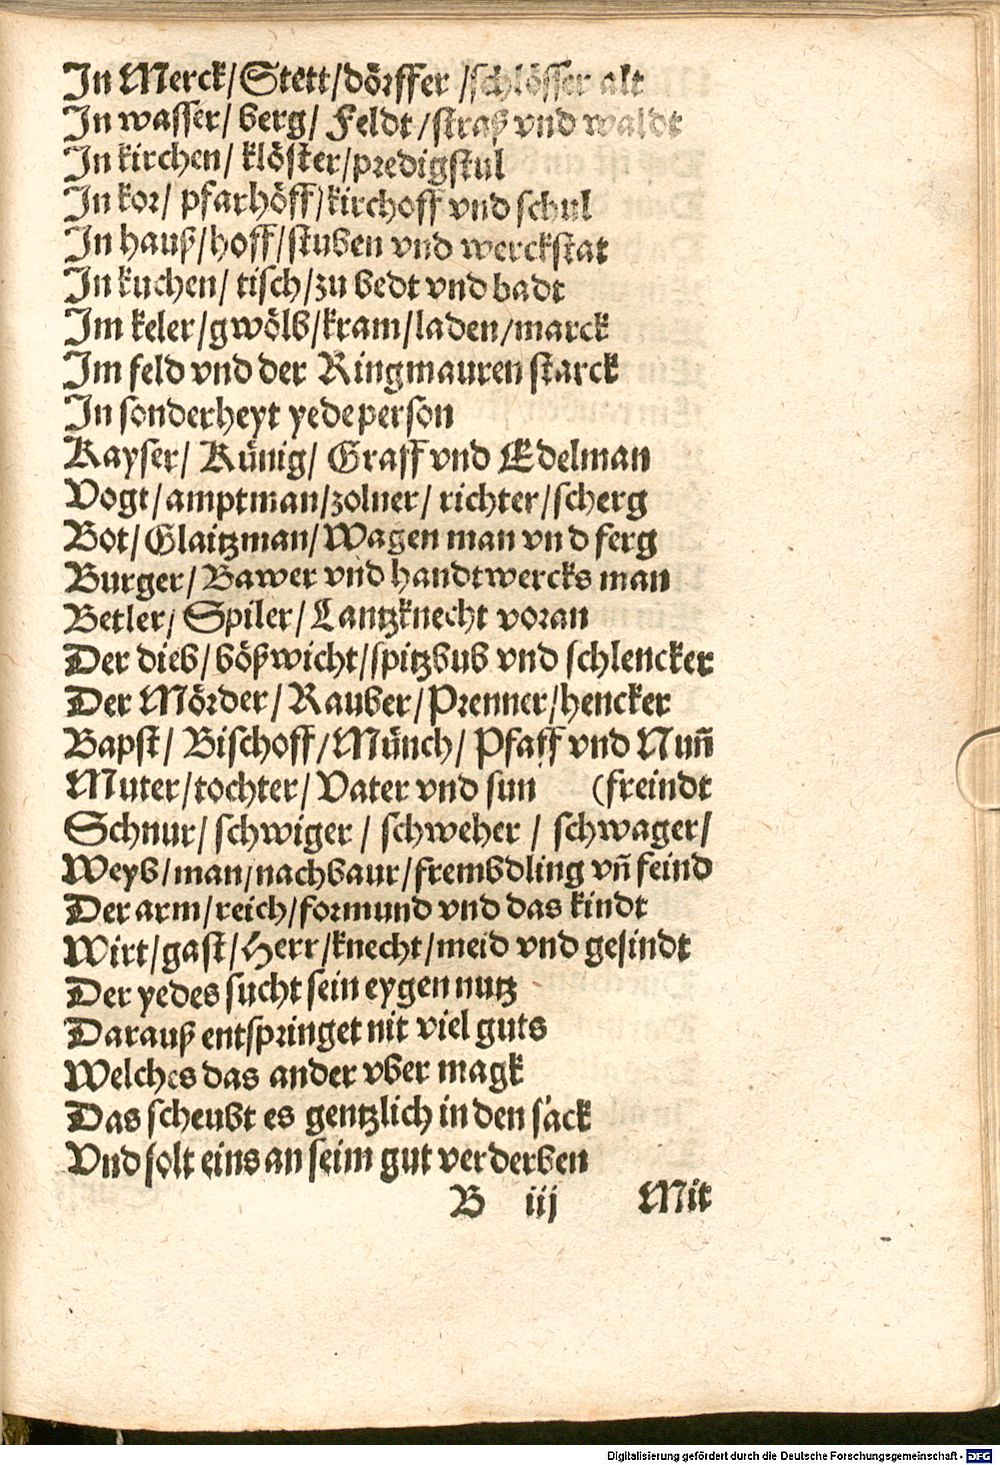 In Merck/Stett/dörffer /schlösser alt
In wasser/ berg/ Feldt /straß vnd waldt
In kirchen/ klöster/predigstul
In kor/ pfarhöff/kirchoff vnd schul
In hauß/hoff/stuben vnd werckstat
In kuchen/ tisch/zu bedt vnd badt
Im keler/gwölb/kram/laden/marck
Im feld vnd der Ringmauren starck
In sonderheyt yede person
Kayser/ Künig/ Graff vnd Edelman
Vogt/amptman/zolner/ richter/scherg
Bot/Glaitzman/Wagen man vnd ferg
Burger/Bawer vnd handtwercks man
Betler/ Spiler/Lantzknecht voran
Der dieb/bößwicht/spitzbub vnd schlencker
Der Mörder/Rauber/Prenner/hencker
Bapst/ Bischoff/Münch/ Pfaff vnd Nuñ
Muter/tochter/ Vater vnd sun (freindt
Schnur/ schwiger / schweher / schwager/
Weyb/man/nachbaur/frembdling vñ feind
Der arm/reich/formund vnd das kindt
Wirt/gast/Herr/knecht/meid vnd gesindt
Der yedes sucht sein eygen nutz
Darauß entspringet nit viel guts
Welches das ander vber magk
Das scheubt es gentzlich in den sack
Vnd solt eins an seim gut verderben
B iij Mit
Digitalisierung gefördert durch die Deutsche Forschungsgemeinschaft - DFG